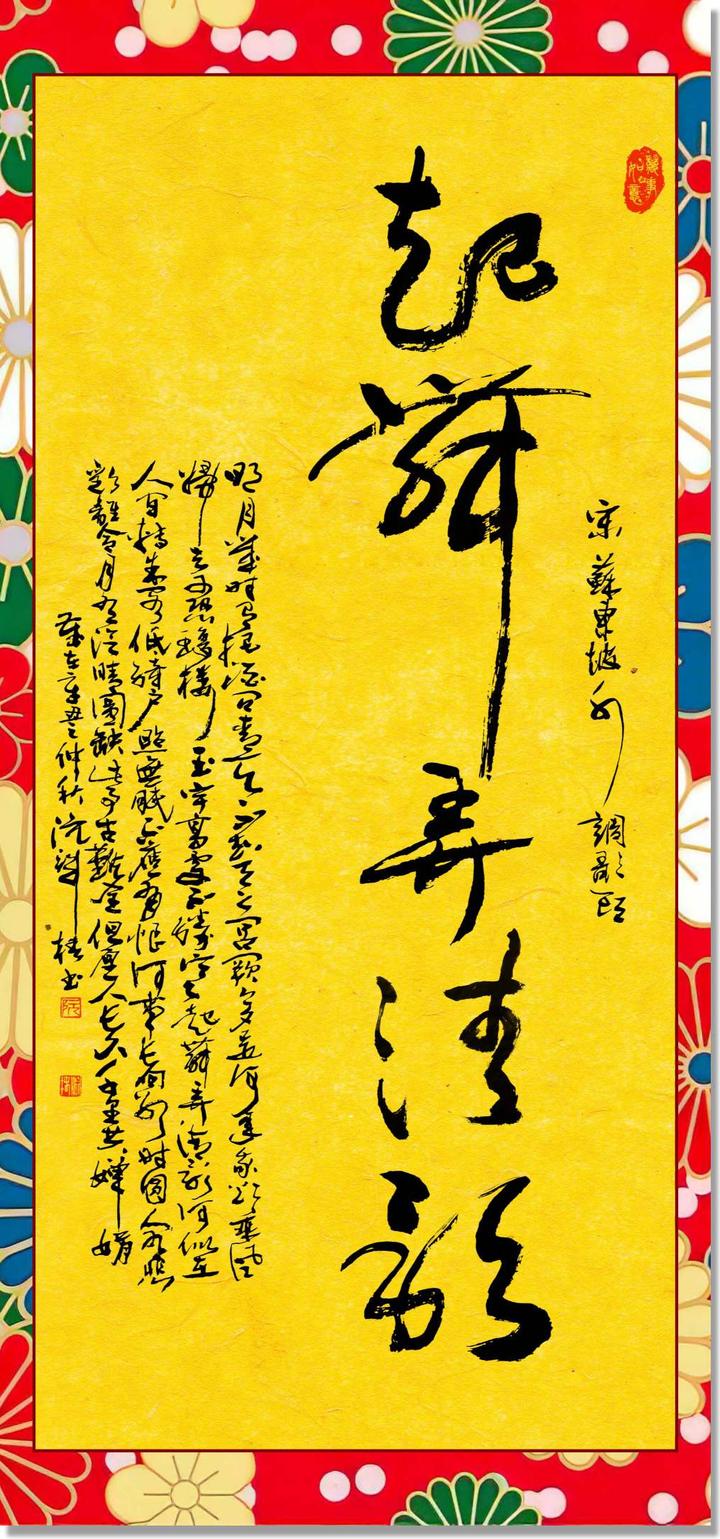 萬事如意
宋蘇東坡水調歌頭
起舞弄清影
明月幾時有把酒問青天不知天上宮闕今夕是何年我欲乘風
歸去又恐瓊樓玉宇高處不勝寒起舞弄清影何似在
人間轉朱閣低綺戶照無眠不應有恨何事長向別時圓人有悲
歡離合月有陰晴圓缺此事古難全但願人長久千里共嬋娟
歲在辛丑仲秋 書